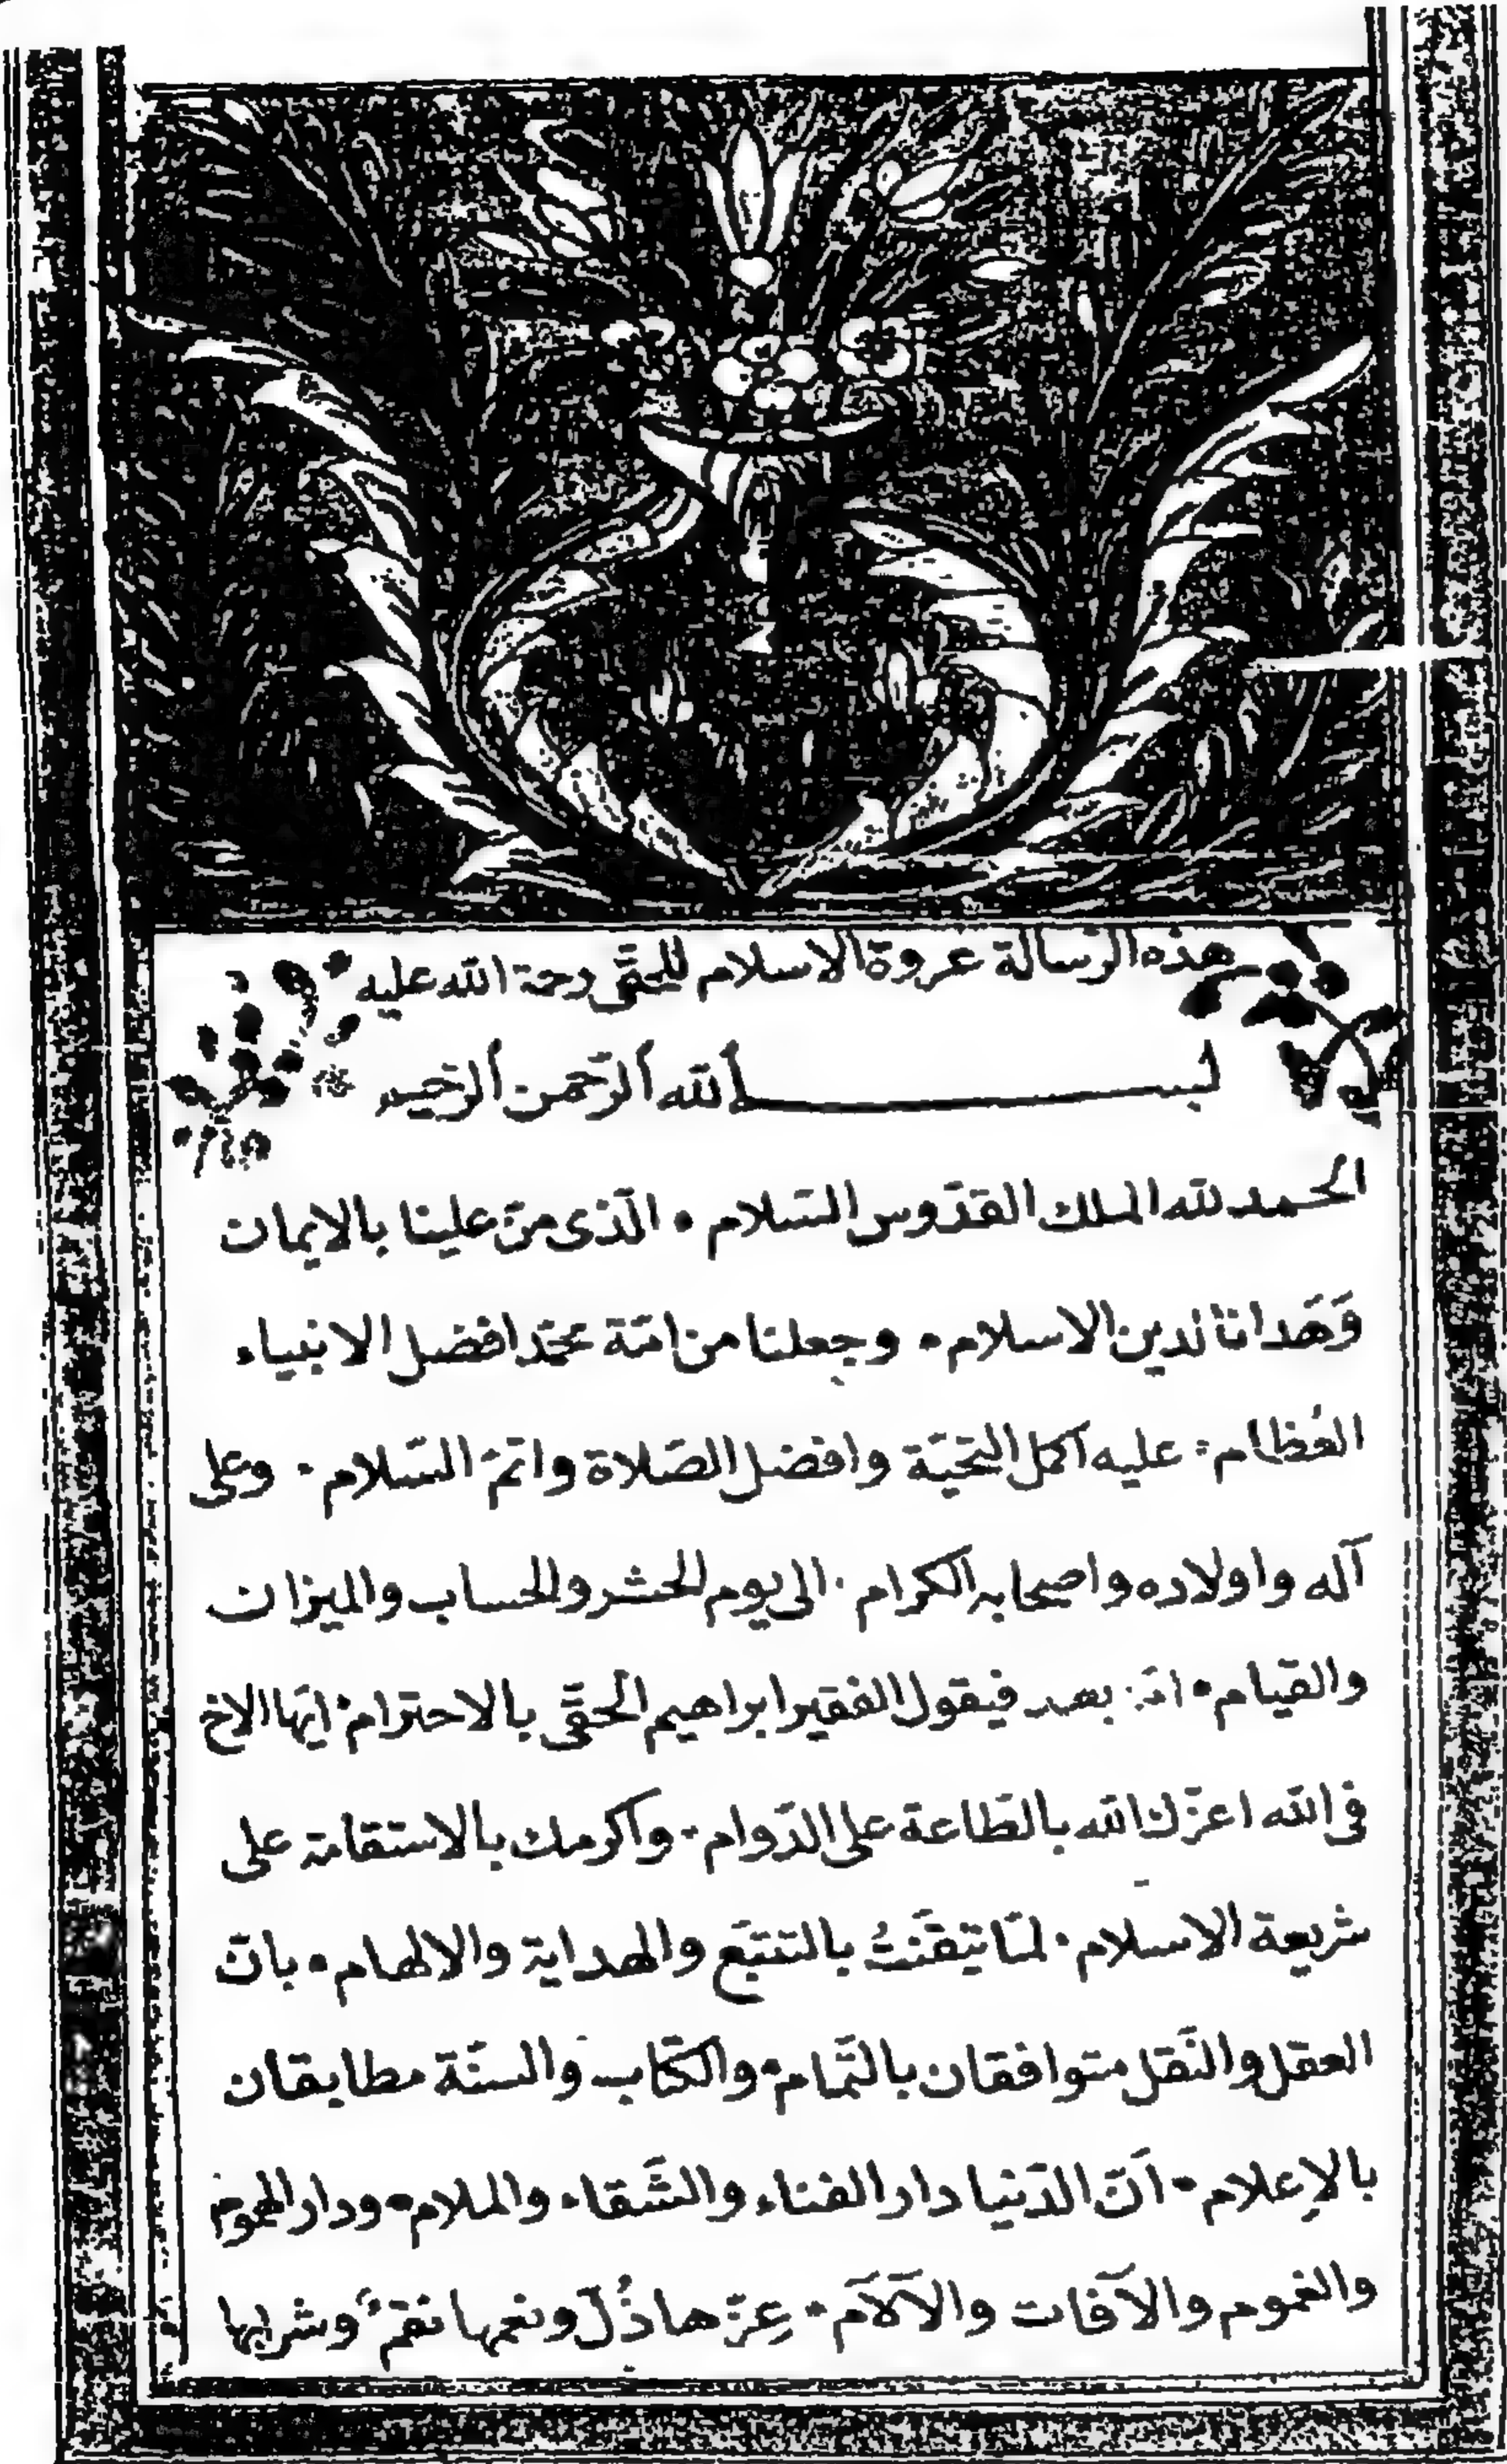 هذه الرسالة عروة الاسلام للحقّى رحمة الله عليه
بسم الله الرّحمن الرّحيم
الحمد لله الملك القدّوس السّلام • الّذى منّ علينا بالايمان
وَهَدانا لدين الاسلام • وجعلنا من امّة محمّد افضل الانبياء
العُظام • عليه اكمل التحيّة وافضل الصّلاة واتمّ السّلام • وعلى
آله واولاده واصحابه الكرام • الى يوم الحشر والحساب والميزان
والقيام • امّا بعد فيقول الفقير ابراهيم الحقّى بالاحترام • ايّها الاخ
فى الله اعزّك الله بالطّاعة على الدّوام • واكرمك بالاستقامة على
شريعة الاسلام • لمّا تيقّنتُ بالتتبّع والهداية والالهام • بانّ
العقل والنّقل متوافقان بالتّمام • والكتاب والسنّة مطابقان
بالإعلام • انّ الدّنيا دار الفناء والشّقاء والملام • ودار الهموم
والغموم والآفات والآلآم • عِزّها ذُلّ ونعمها نقم • وشرابها